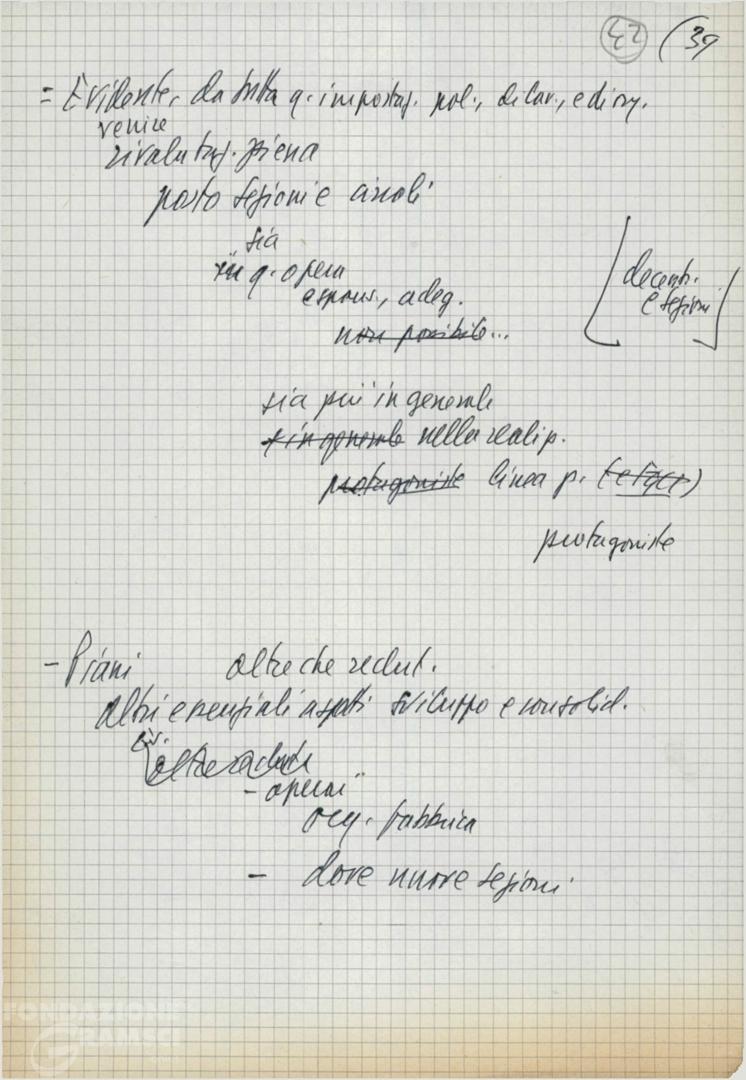 42 (39
= Evidente, da tutta q. impostaz. pol., di lav., e di org.
venire
rivalutaz. piena
posto sezioni e circoli
sia
in q. opera
espans., adeg.
non possibile...
[decentr.
e sezioni]
sia più in generale
in generale nella realizz.
protagoniste linea p.
protagoniste
- Piani oltre che reclut.
altri essenziali aspetti sviluppo e consolid.
- operai
org. fabbrica
- dove nuove sezioni
FONDAZIONE
GRAMSCI